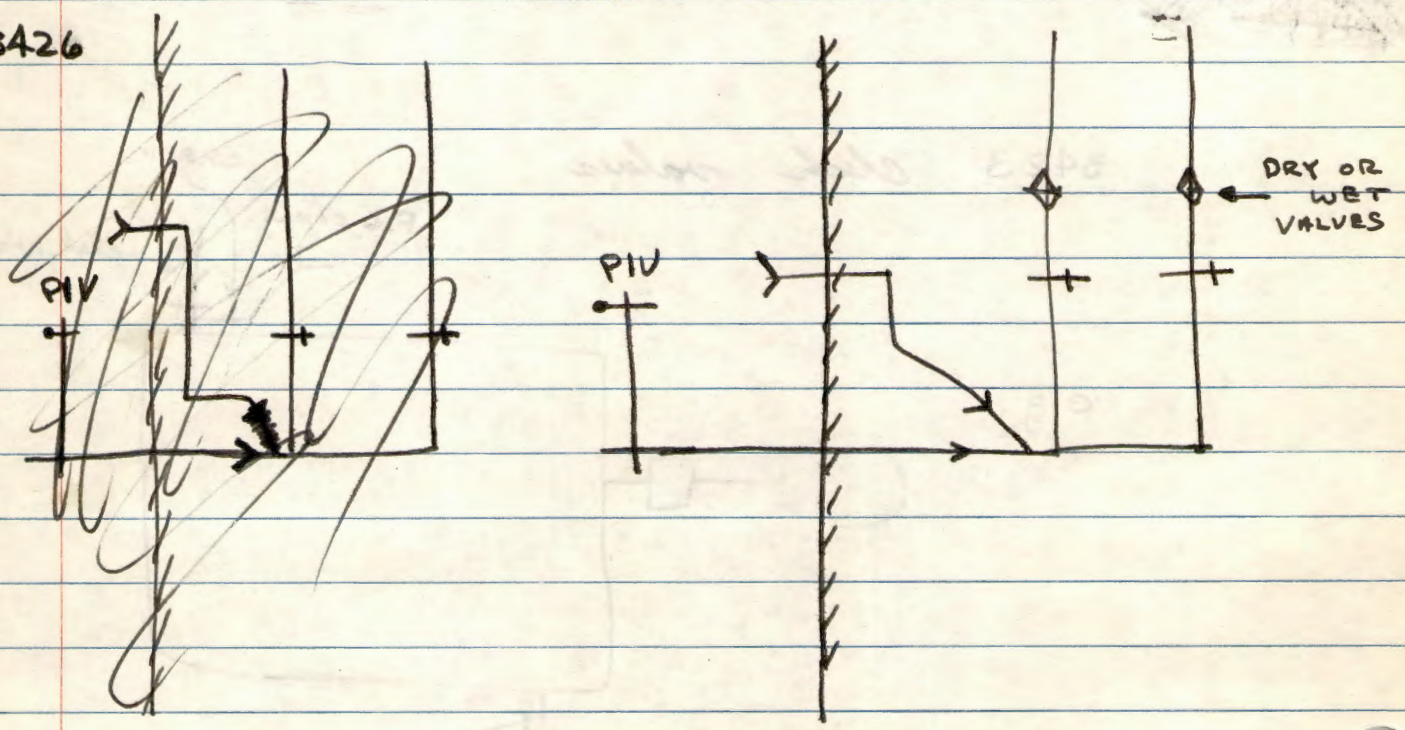 3426
PIV
PIV
DRY OR
WET
VALVES